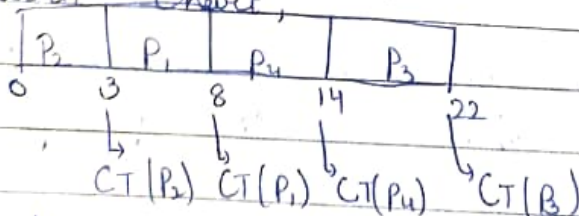 Chart,
P₂ P₁ P₄ P₃
0 3 8 14 22
CT(P₂) CT(P₁) CT(P₄) CT(P₃)